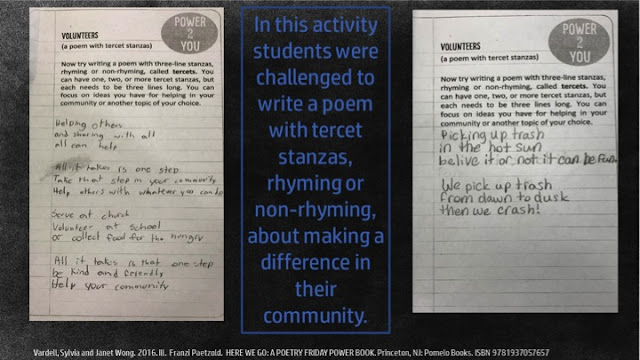 POWER
2
YOU
VOLUNTEERS
(a poem with tercet stanzas)
Now try writing a poem with three-line stanzas,
rhyming or non-rhyming, called tercets. You
can have one, two, or more tercet stanzas, but
each needs to be three lines long. You can
focus on ideas you have for helping in your
community or another topic of your choice.
Helping others
and sharing with all
all can help
All it takes is one step
Take that step in your community
Help others with whatever you can do
Serve at church
Volunteer at school
or collect food for the hungry
All it takes is that one step
be kind and friendly
Help your community
In this activity
students were
challenged to
write a poem
with tercet
stanzas,
rhyming or
non-rhyming,
about making a
difference in
their
community.
POWER
2
YOU
VOLUNTEERS
(a poem with tercet stanzas)
Now try writing a poem with three-line stanzas,
rhyming or non-rhyming, called tercets. You
can have one, two, or more tercet stanzas, but
each needs to be three lines long. You can
focus on ideas you have for helping in your
community or another topic of your choice.
Picking up trash
in the hot sun
belive it or not it can be fun.
We pick up trash
from dawn to dusk
then we crash!
Vardell, Sylvia and Janet Wong. 2016. Ill. Franzi Paetzold. HERE WE GO: A POETRY FRIDAY POWER BOOK. Princeton, NJ: Pomelo Books. ISBN 9781937057657